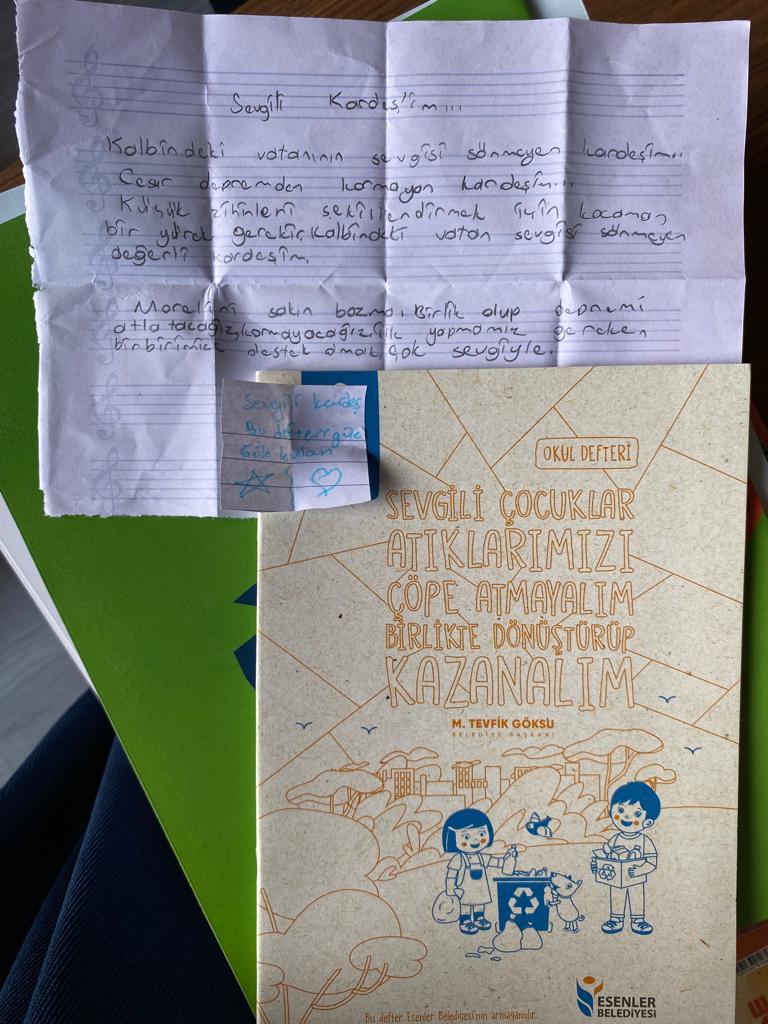 Sevgili Kardeş'im...
Kalbindeki vatanının sevgisi sönmeyen kardeşim..
Cesur depremden kormayan kardeşim...
Küçük zihinleri sekillendirmek için kocaman
bir yürek gerekir. Kalbindeki vatan sevgisi sönmeyen
değerli kardeşim.
Moralini sakın bozma. Birlik olup depremi
atlatacağız, kormayacağız, ilk yapmamız gereken
birbirimize destek olmak, çok sevgiyle.
Sevgili kardeş
Bu defteri güle
Güle kullan
OKUL DEFTERİ
SEVGİLİ ÇOCUKLAR
ATIKLARIMIZI
ÇÖPE ATMAYALIM
BİRLİKTE DÖNÜŞTÜRÜP
KAZANALIM
M. TEVFİK GÖKSU
BELEDİYE BAŞKANI
ESENLER
BELEDİYESİ
Bu defter Esenler Belediyesi'nin armağanıdır.